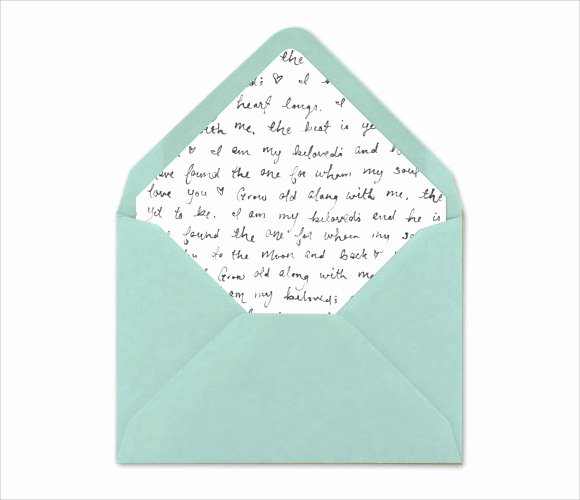 the
♥ I
heart longs. I
with me, the best is ye
♥ I am my beloveds and h
ve found the one for whom my soul
love you ♥ Grow old along with me, the
yet to be. I am my beloveds and he is
found the one for whom my so
to the moon and back ♥
Grow old along with me
am my beloveds